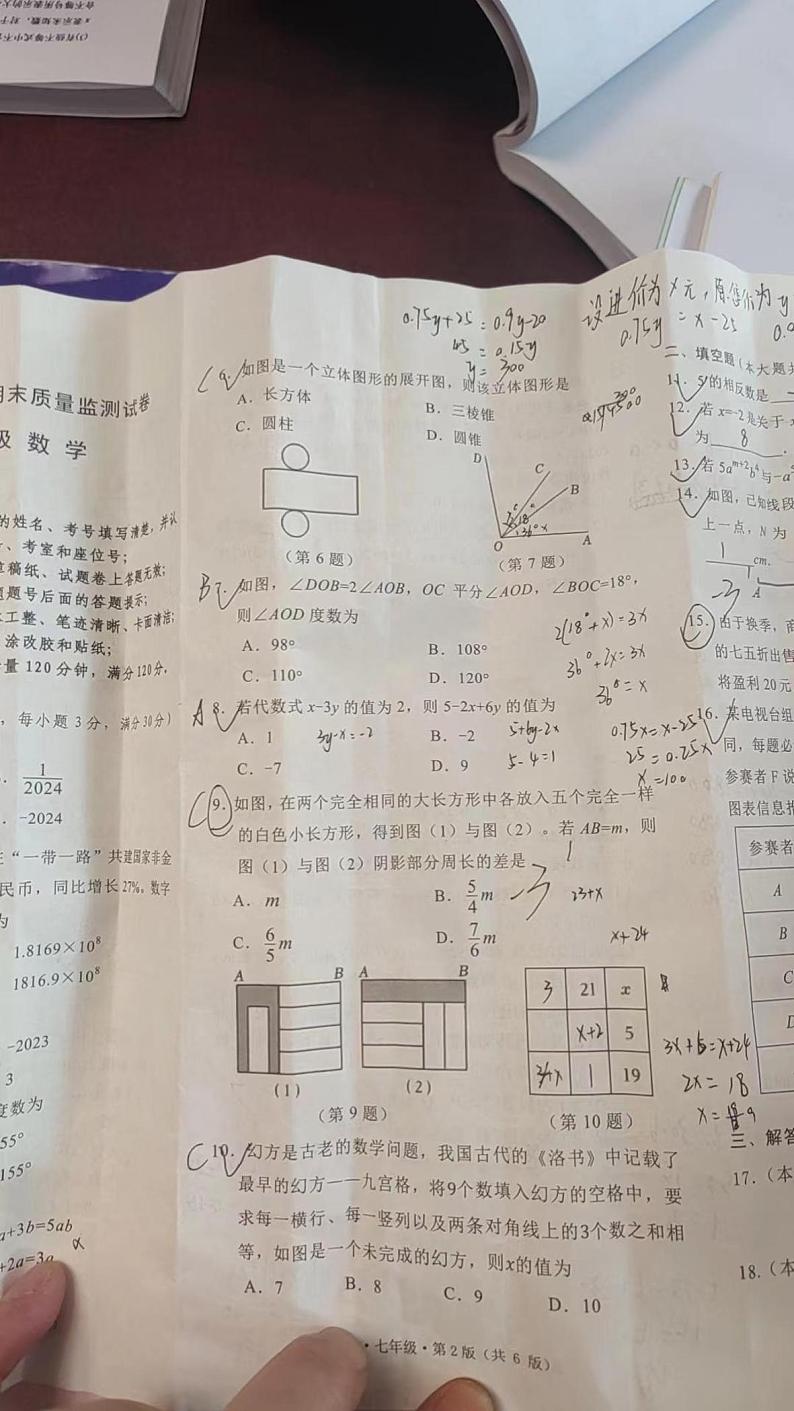 期末质量监测试卷
级数学
的姓名、考号填写清楚,并认
、考室和座位号;
草稿纸、试题卷上答题无效;
题号后面的答题提示;
体工整、笔迹清晰、卡面清洁;
涂改胶和贴纸;
量 120 分钟,满分120分.
,每小题 3 分,满分30分)
1/2024
. -2024
“一带一路”共建国家非金
民币,同比增长27%。数字
为
1.8169×10⁸
1816.9×10⁸
-2023
3
度数为
55°
155°
a+3b=5ab
+2a=3a
0.75y+25=0.9y-20
45=0.15y
y=300
C 6. 如图是一个立体图形的展开图,则该立体图形是
A. 长方体
B. 三棱锥
C. 圆柱
D. 圆锥
D
C
B
18°
36° x
O
A
(第 6 题)
(第 7 题)
B 7. 如图,∠DOB=2∠AOB,OC 平分∠AOD,∠BOC=18°,
则∠AOD 度数为
A. 98°
B. 108°
C. 110°
D. 120°
2(18°+x)=3x
36°+2x=3x
36°=x
A 8. 若代数式 x-3y 的值为 2,则 5-2x+6y 的值为
A. 1
3y-x=-2
B. -2
5+6y-2x
C. -7
D. 9
5-4=1
0.75x=x-25
25=0.25x
x=100
C 9. 如图,在两个完全相同的大长方形中各放入五个完全一样
的白色小长方形,得到图(1)与图(2)。若 AB=m,则
图(1)与图(2)阴影部分周长的差是
A. m
B. 5/4 m
-3
23+x
C. 6/5 m
D. 7/6 m
x+24
A B A B
3 21 x
x+2 5
1 19
(1)
(2)
(第 9 题)
(第 10 题)
3x+6=x+24
2x=18
x=9
C 10. 幻方是古老的数学问题,我国古代的《洛书》中记载了
最早的幻方——九宫格,将9个数填入幻方的空格中,要
求每一横行、每一竖列以及两条对角线上的3个数之和相
等,如图是一个未完成的幻方,则x的值为
A. 7
B. 8
C. 9
D. 10
·七年级·第 2 版(共 6 版)
设进价为x元,原售价为y
0.75y=x-25
二、填空题(本大题共
11. 5的相反数是
12. 若 x=-2 是关于
为 8 .
13. 若 5aᵐ⁺²b⁴与-a
14. 如图,已知线段
上一点,N 为
1 cm.
A
-3
15. 由于换季,商
的七五折出售
将盈利20元
16. 某电视台组
同,每题必
参赛者 F 说
图表信息
参赛者
A
B
C
三、解答
17.(本
18.(本